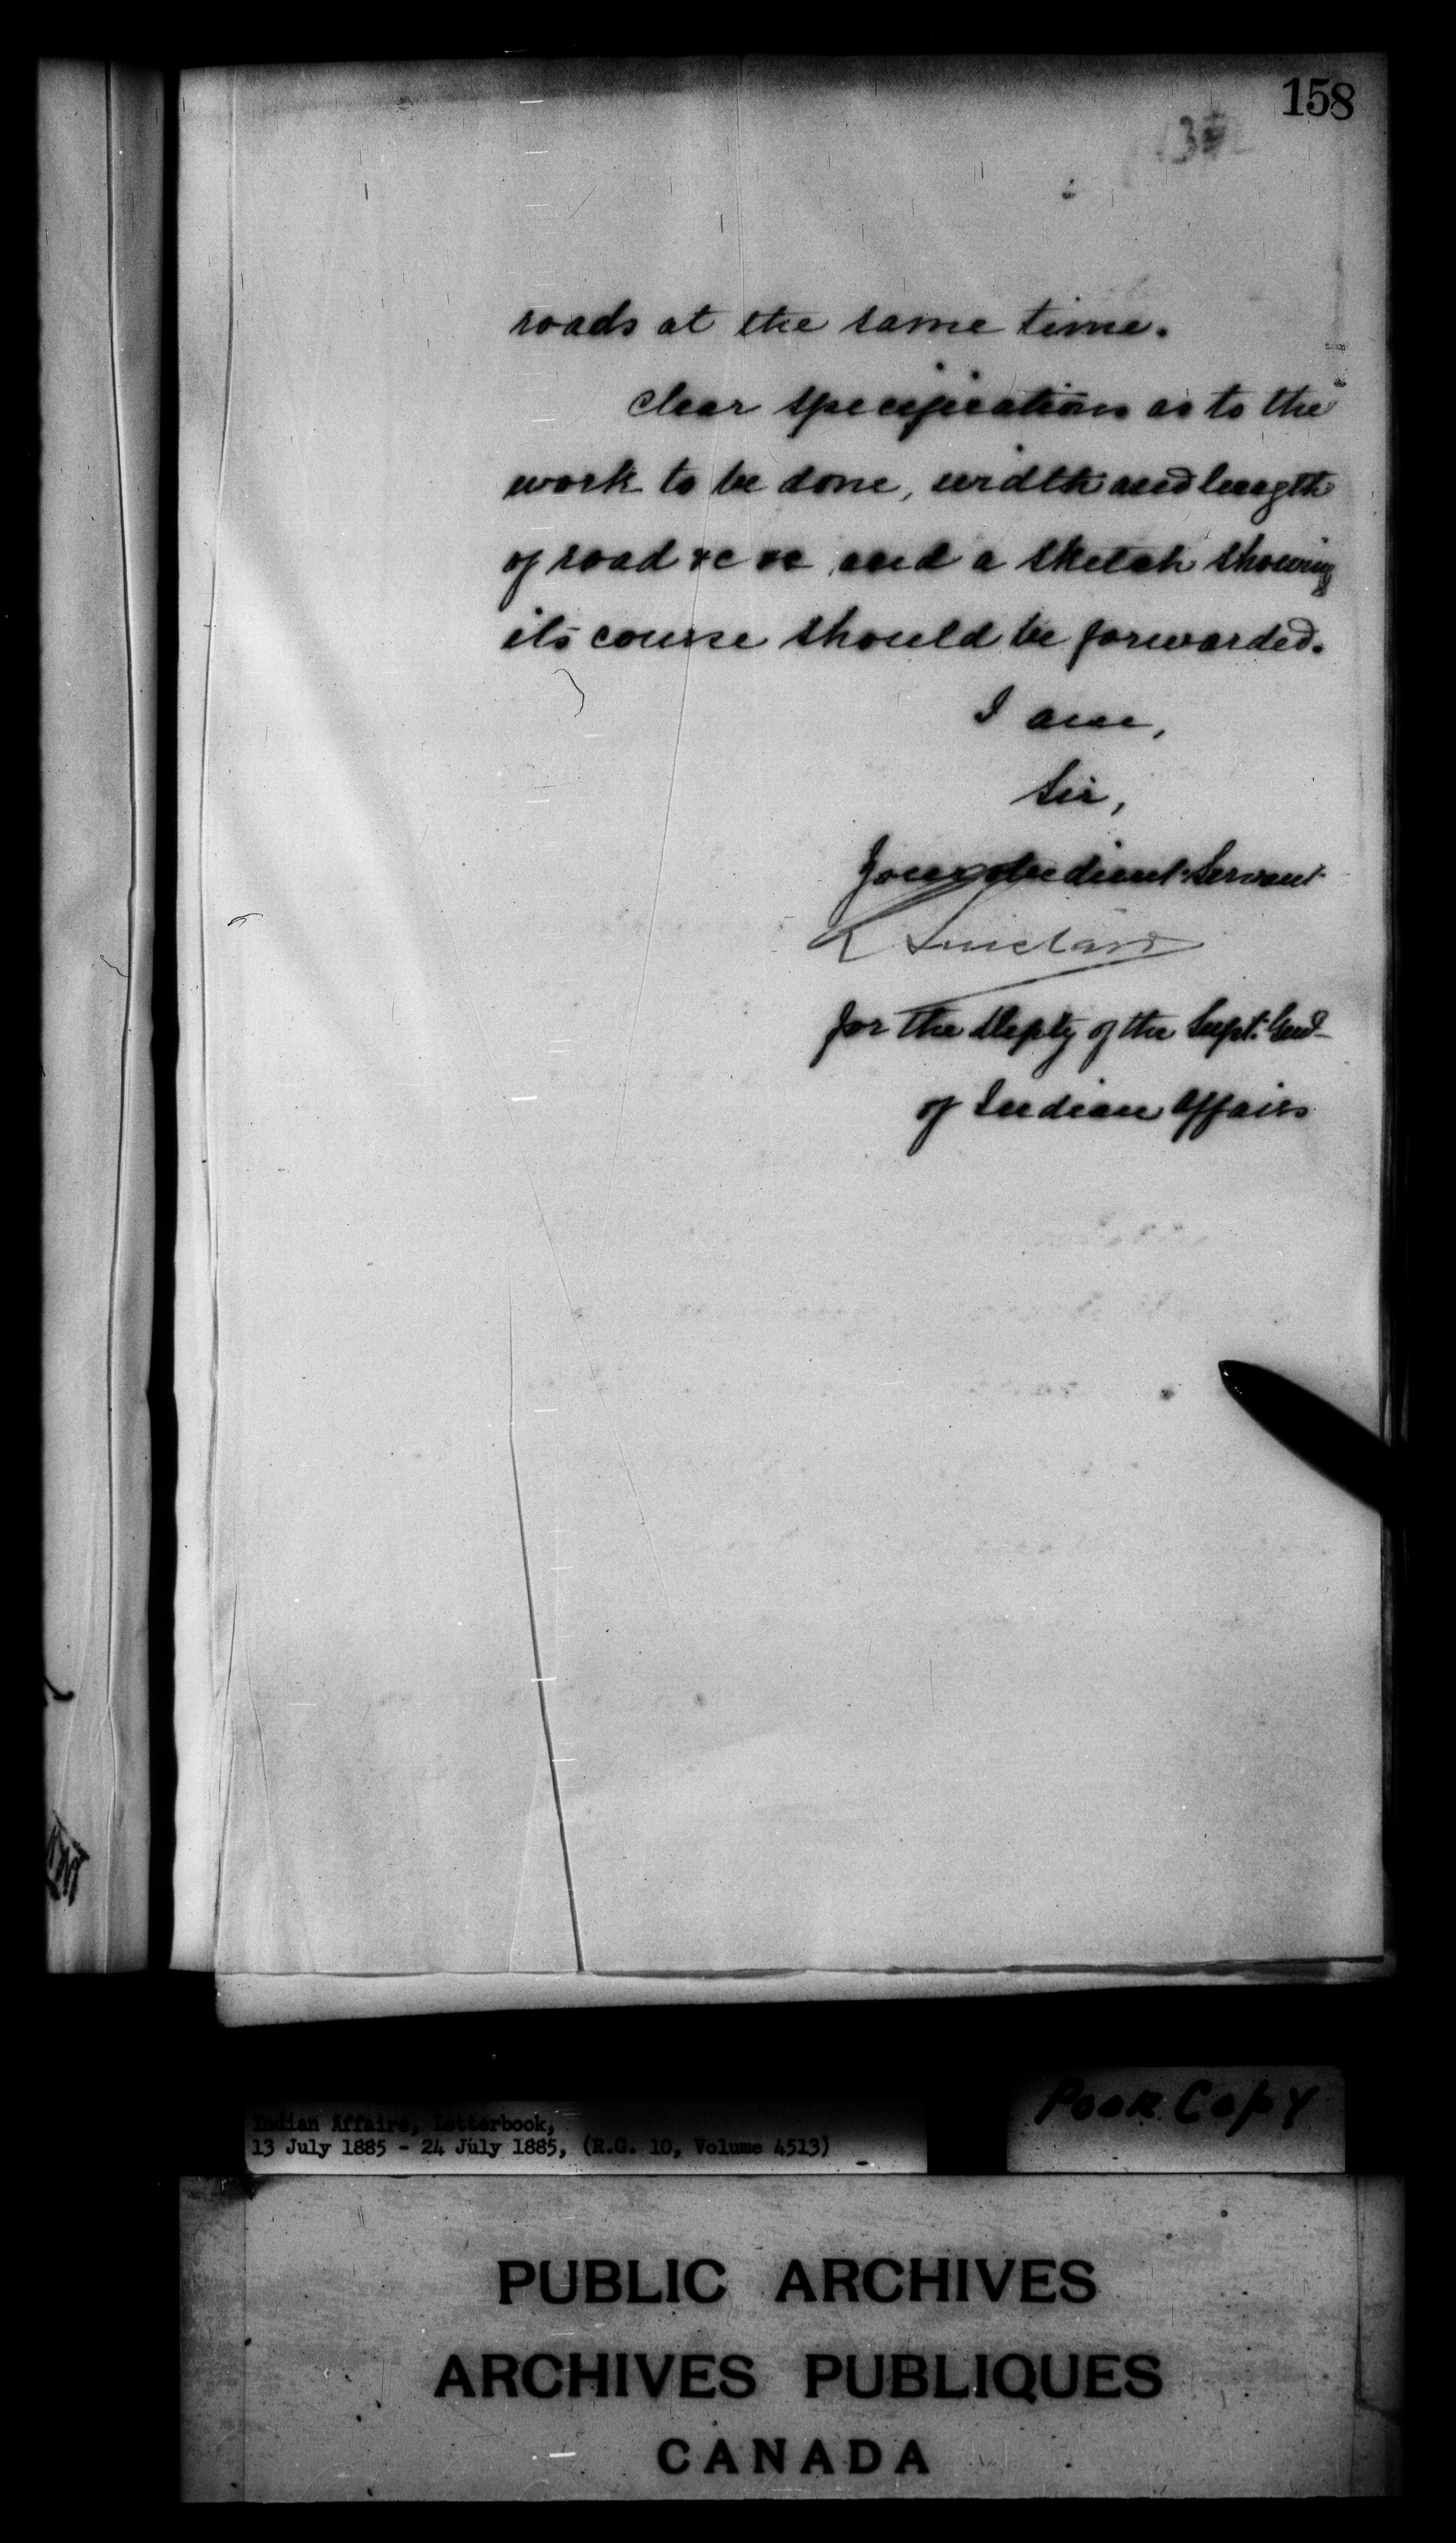 158
roads at the same time.
Clear specifications as to the
work to be done, width and length
of road &c &c and a sketch showing
its course should be forwarded.
I am,
Sir,
Your obedient Servant
R Sinclair
for the Depty of the Supt. Genl
of Indian Affairs
Indian Affairs, Letterbook,
13 July 1885 - 24 July 1885, (R.G. 10, Volume 4513)
POOR COPY
PUBLIC ARCHIVES
ARCHIVES PUBLIQUES
CANADA